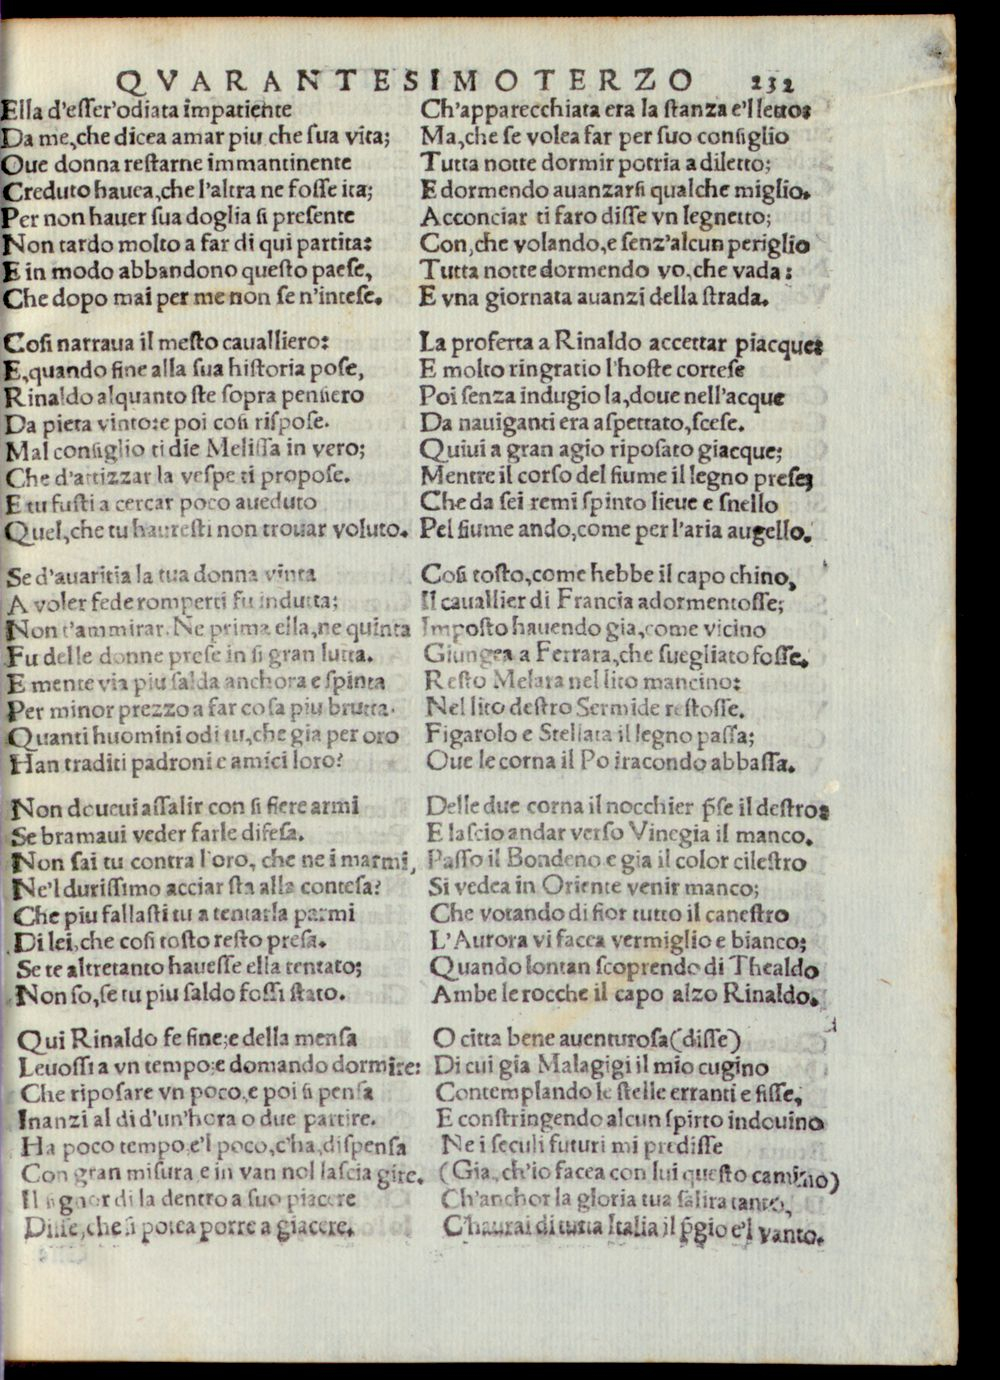 QVARANTESIMOTERZO 232
Ella d'esser'odiata impatiente
Da me, che dicea amar piu che sua vita;
Oue donna restarne immantinente
Creduto hauea, che l'altra ne fosse ita;
Per non hauer sua doglia si presente
Non tardo molto a far di qui partita:
E in modo abbandono questo paese,
Che dopo mai per me non se n'intese.
Cosi narraua il mesto caualliero:
E, quando fine alla sua historia pose,
Rinaldo alquanto ste sopra pensiero
Da pieta vinto: e poi cosi rispose.
Mal consiglio ti die Melissa in vero;
Che d'attizzar la vespe ti propose.
E tu fusti a cercar poco aueduto
Quel, che tu hauresti non trouar voluto.
Se d'auaritia la tua donna vinta
A voler fede romperti fu indutta;
Non t'ammirar. Ne prima ella, ne quinta
Fu delle donne prese in si gran lutta.
E mente via piu salda anchora e spinta
Per minor prezzo a far cosa piu brutta.
Quanti huomini odi tu, che gia per oro
Han traditi padroni e amici loro?
Non doueui assalir con si fiere armi
Se bramaui veder farle difesa.
Non sai tu contra l'oro, che ne i marmi,
Ne'l durissimo acciar sta alla contesa?
Che piu fallasti tu a tentarla parmi
Di lei, che cosi tosto resto presa.
Se te altretanto hauesse ella tentato;
Non so, se tu piu saldo fossi stato.
Qui Rinaldo fe fine; e della mensa
Leuossi a vn tempo: e domando dormire:
Che riposare vn poco, e poi si pensa
Inanzi al di d'un'hora o due partire.
Ha poco tempo, e'l poco, c'ha, dispensa
Con gran misura, e in van nol lascia gire.
Il signor di la dentro a suo piacere
Disse, che si potea porre a giacere.
Ch'apparecchiata era la stanza e'l letto:
Ma, che se volea far per suo consiglio
Tutta notte dormir potria a diletto;
E dormendo auanzarsi qualche miglio.
Acconciar ti faro disse vn legnetto;
Con, che volando, e senz'alcun periglio
Tutta notte dormendo vo, che vada:
E vna giornata auanzi della strada.
La proferta a Rinaldo accettar piacque:
E molto ringratio l'hoste cortese
Poi senza indugio la, doue nell'acque
Da nauiganti era aspettato, scese.
Quiui a gran agio riposato giacque;
Mentre il corso del fiume il legno prese;
Che da sei remi spinto lieue e snello
Pel fiume ando, come per l'aria augello.
Cosi tosto, come hebbe il capo chino,
Il cauallier di Francia adormentosse;
Imposto hauendo gia, come vicino
Giungea a Ferrara, che suegliato fosse.
Resto Melara nel lito mancino:
Nel lito destro Sermide restosse.
Figarolo e Stellata il legno passa;
Oue le corna il Po iracondo abbassa.
Delle due corna il nocchier p̃se il destro:
E lascio andar verso Vinegia il manco.
Passo il Bondeno e gia il color cilestro
Si vedea in Oriente venir manco;
Che votando di fior tutto il canestro
L'Aurora vi facea vermiglio e bianco;
Quando lontan scoprendo di Thealdo
Ambe le rocche il capo alzo Rinaldo.
O citta bene auenturosa (disse)
Di cui gia Malagigi il mio cugino
Contemplando le stelle erranti e fisse,
E constringendo alcun spirto indouino
Ne i seculi futuri mi predisse
(Gia, ch'io facea con lui questo camino)
Ch'anchor la gloria tua salira tanto,
C'haurai di tutta Italia il p̃gio e'l vanto.